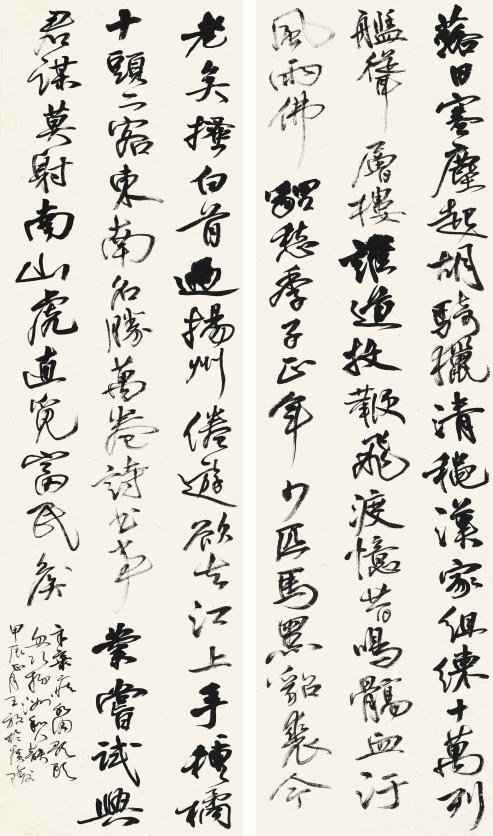 落日塞塵起胡騎獵清穐漢家組練十萬列
艦聳層樓誰道投鞭飛渡憶昔鳴髇血汙
風雨佛貍愁季子正年少匹馬黑貂裘今
老矣搔白首過揚州倦遊欲去江上手種橘
千頭二客東南名勝萬卷詩書事業嘗試與
君謀莫射南山虎直覓富民矦
辛棄疾水調歌頭
舟次揚州和人韻
甲辰正月